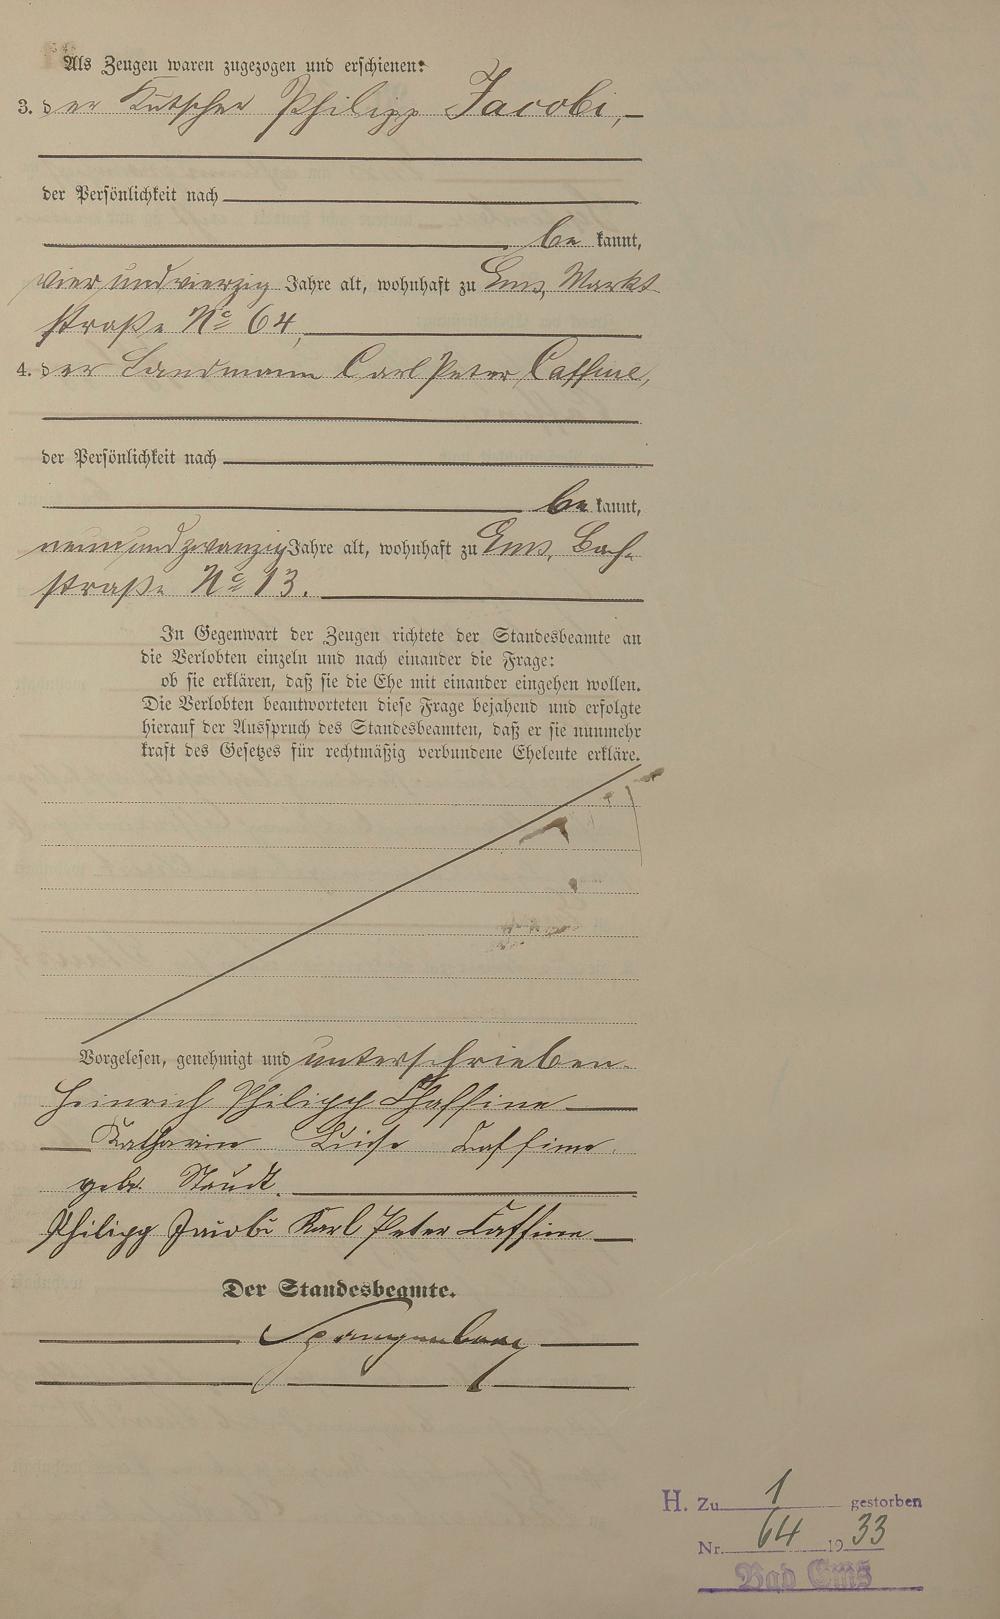 Als Zeugen waren zugezogen und erschienen:
3. der Kutscher Philipp Jacobi,
der Persönlichkeit nach
be kannt,
vierundvierzig Jahre alt, wohnhaft zu Ems, Markt
straße No 64,
4. der Landmann Carl Peter Caffine,
der Persönlichkeit nach
be kannt,
neunundzwanzig Jahre alt, wohnhaft zu Ems, Bach
straße No 13.
In Gegenwart der Zeugen richtete der Standesbeamte an
die Verlobten einzeln und nach einander die Frage:
ob sie erklären, daß sie die Ehe mit einander eingehen wollen.
Die Verlobten beantworteten diese Frage bejahend und erfolgte
hierauf der Ausspruch des Standesbeamten, daß er sie nunmehr
kraft des Gesetzes für rechtmäßig verbundene Eheleute erkläre.
Vorgelesen, genehmigt und unterschrieben.
Heinrich Philipp Chaffine
Katharine Luise Caffine
geb. Staudt.
Philipp Jacobi Karl Peter Caffine
Der Standesbeamte.
Spangenberg
H. Zu 1 gestorben
Nr. 64 1933
Bad Ems